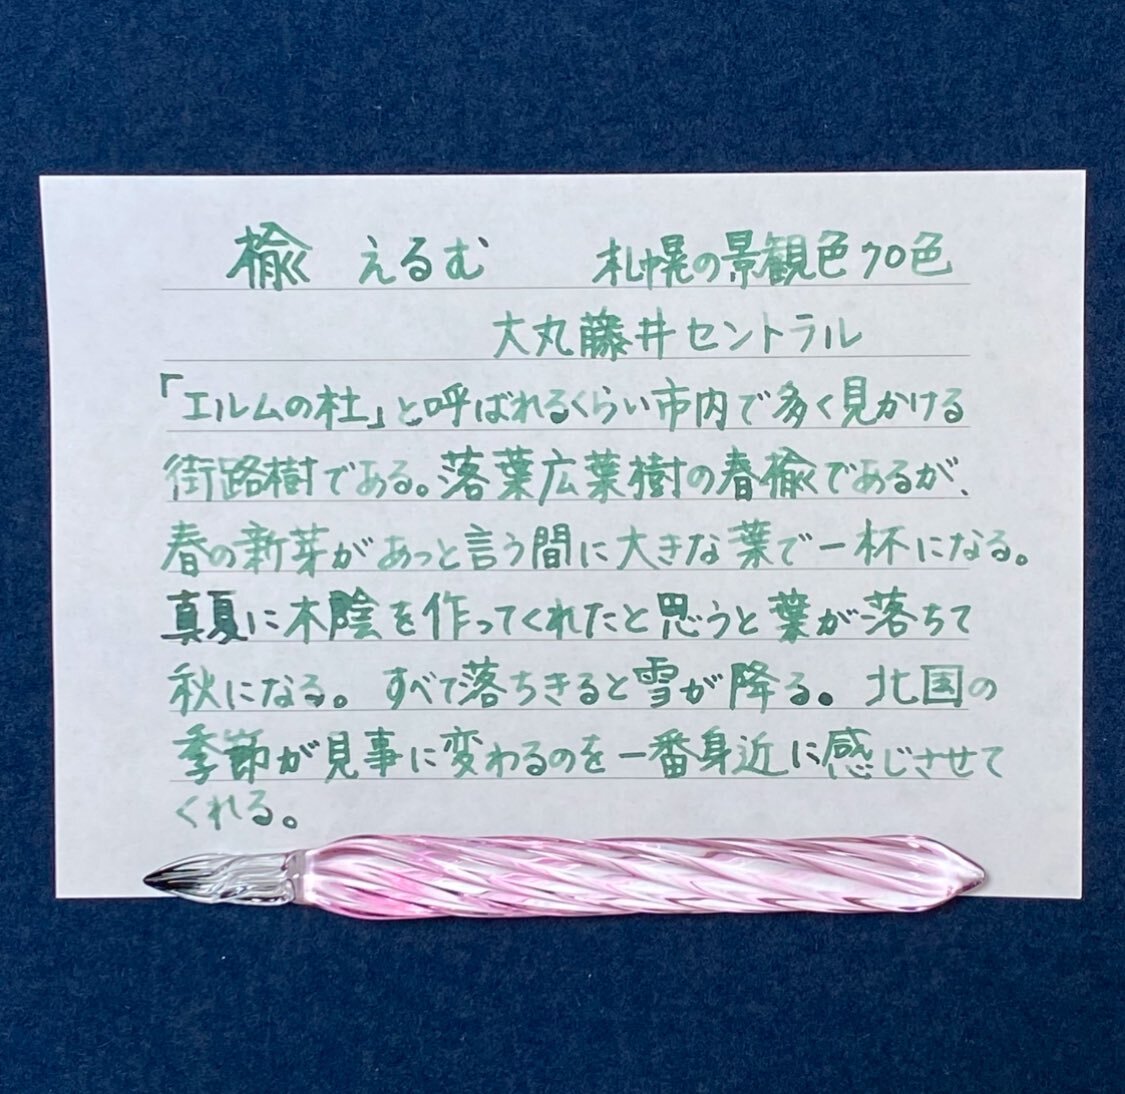 楡 えるむ 札幌の景観色70色
大丸藤井セントラル
「エルムの杜」と呼ばれるくらい市内で多く見かける
街路樹である。落葉広葉樹の春楡であるが、
春の新芽があっと言う間に大きな葉で一杯になる。
真夏に木陰を作ってくれたと思うと葉が落ちて
秋になる。すべて落ちきると雪が降る。北国の
季節が見事に変わるのを一番身近に感じさせて
くれる。